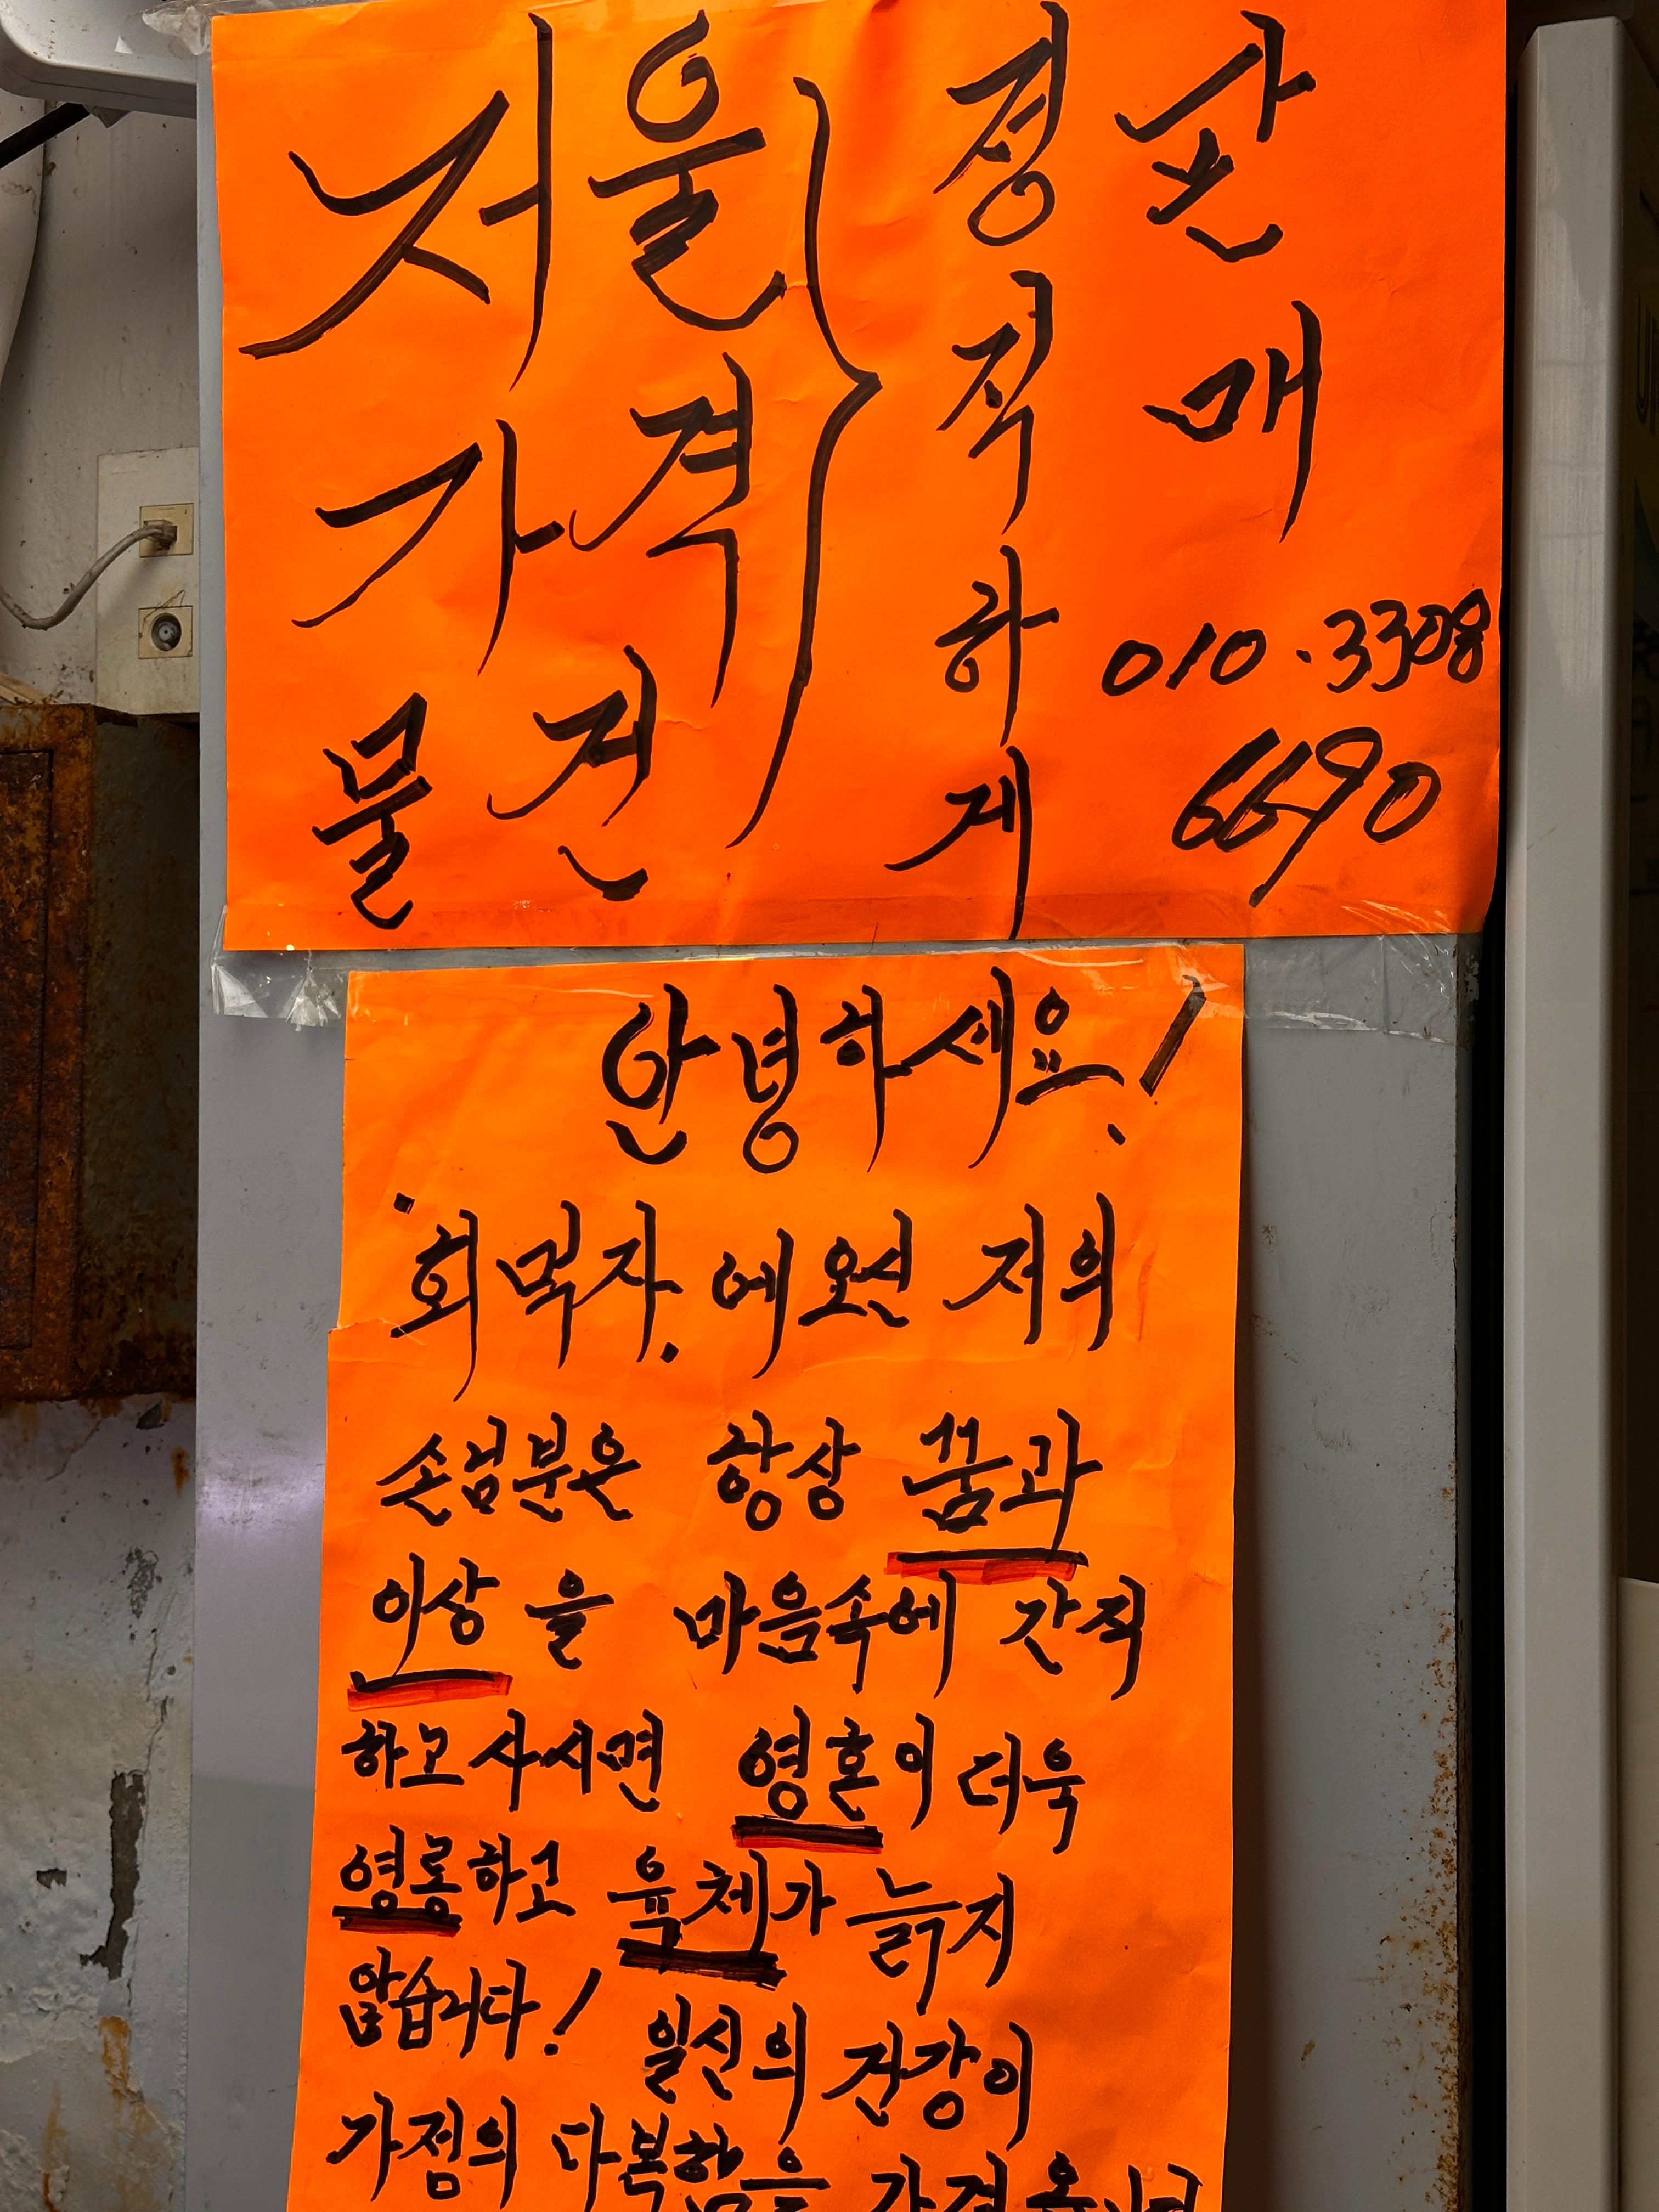 저울
가격
물건
정직하게
판매
010.3308
6690
안녕하세요!
·회먹자. 에 오신 저의
손님분은 항상 꿈과
이상을 마음속에 간직
하고 사시면 영혼이 더욱
영롱하고 육체가 늙지
않습니다! 일신의 건강이
가정의 다복함을